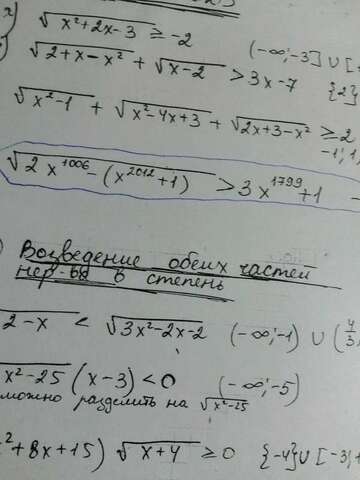 √(x²+2x-3) ≥ -2 (-∞; -3] ∪ [
√(2+x-x²) + √(x-2) > 3x-7 {2}
√(x²-1) + √(x²-4x+3) + √(2x+3-x²) ≥ 2
-1; 1;
√(2x¹⁰⁰⁶-(x²⁰¹²+1)) > 3x¹⁷⁹⁹+1 -
) Возведение обеих частей
нер-ва в степень
2-x < √(3x²-2x-2) (-∞; -1) ∪ (4/3;
√(x²-25) (x-3) < 0 (-∞; -5)
можно разделить на √(x²-25)
x²+8x+15) √(x+4) ≥ 0 {-4} ∪ [-3; +